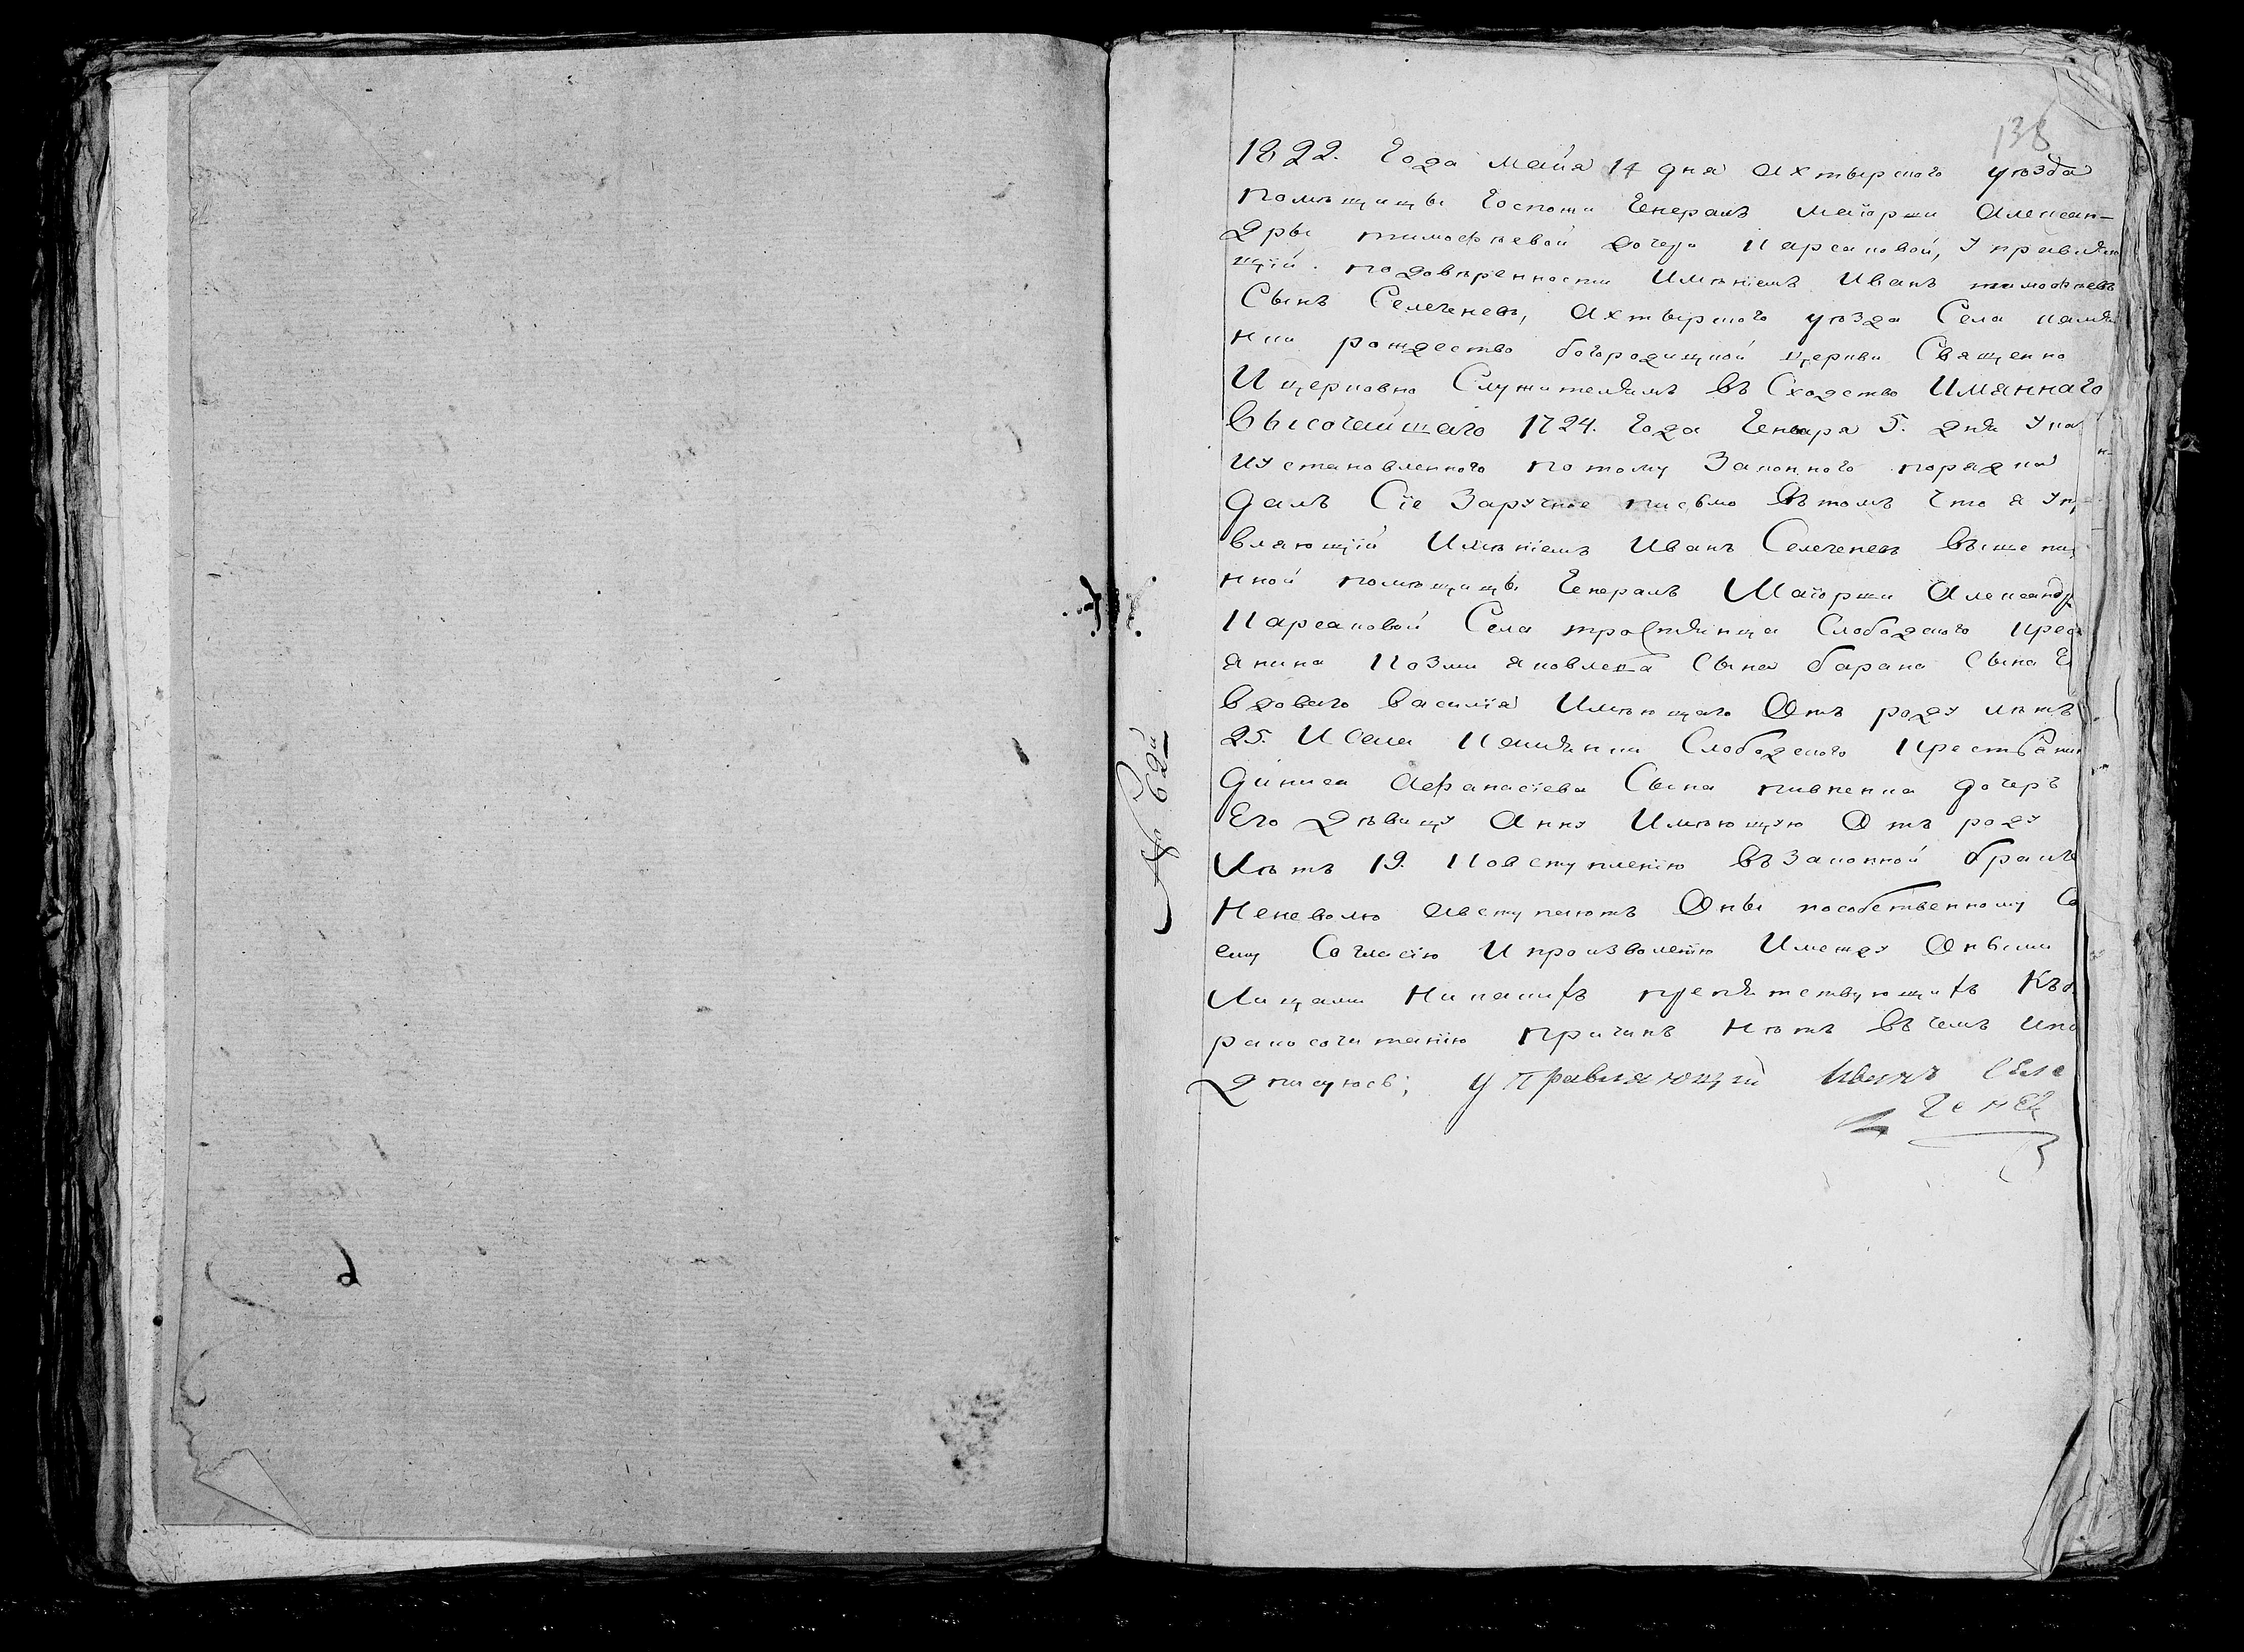 138
1822. Года маия 14 дня Ахтырского уѣзда
помѣщицы Госпожи Генералъ маіорши Алексан-
дры тимофѣевой дочери Карсаковой, Управляю
щій подовѣренности Имѣніемъ Иванъ тимофѣевъ
Сынъ Селеченевъ, Ахтырского уѣзда Села камян
ки рождество богородицкой церкви Священно
И церковно Служителямъ въ Сходство Имяннаго
высочайшаго 1724. Года Генваря 5. дня Ука
иустановленного потому Законного порядка
далъ Сіе Заручное писъмо вътомъ Что я Уп
вляющій Имѣніемъ Иванъ Селеченевъ выше пи
нной помѣщицы Генералъ Маіорши Александр
Карсаковой Села тростянца Слободского крес
янина Козми яковлева Сына барана Сына Е
вдоваго василія Имѣющаго Отъ роду лѣтъ
25. ИСела Камянки Слободского Крестьянин
дѣниса Афанасіева Сына пивненка дочеръ
Его дѣвицу Анну Имѣющую Отъ роду
Лѣтъ 19. Ковступленію въЗаконной бракъ
Неневолю Авступаютъ Оны пособственному Св
ему Согласію Ипроизволенію Имежду Оными
Лицами Никакихъ препятствующихъ Къб
ракосочитанію причинъ нѣтъ въчемъ ипо
дписуюсь; управляющій Иванъ Селе
ченевъ
№ 62й